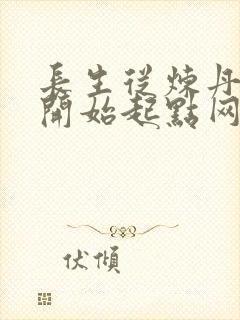 長生從煉丹
開始起點网
伏傾